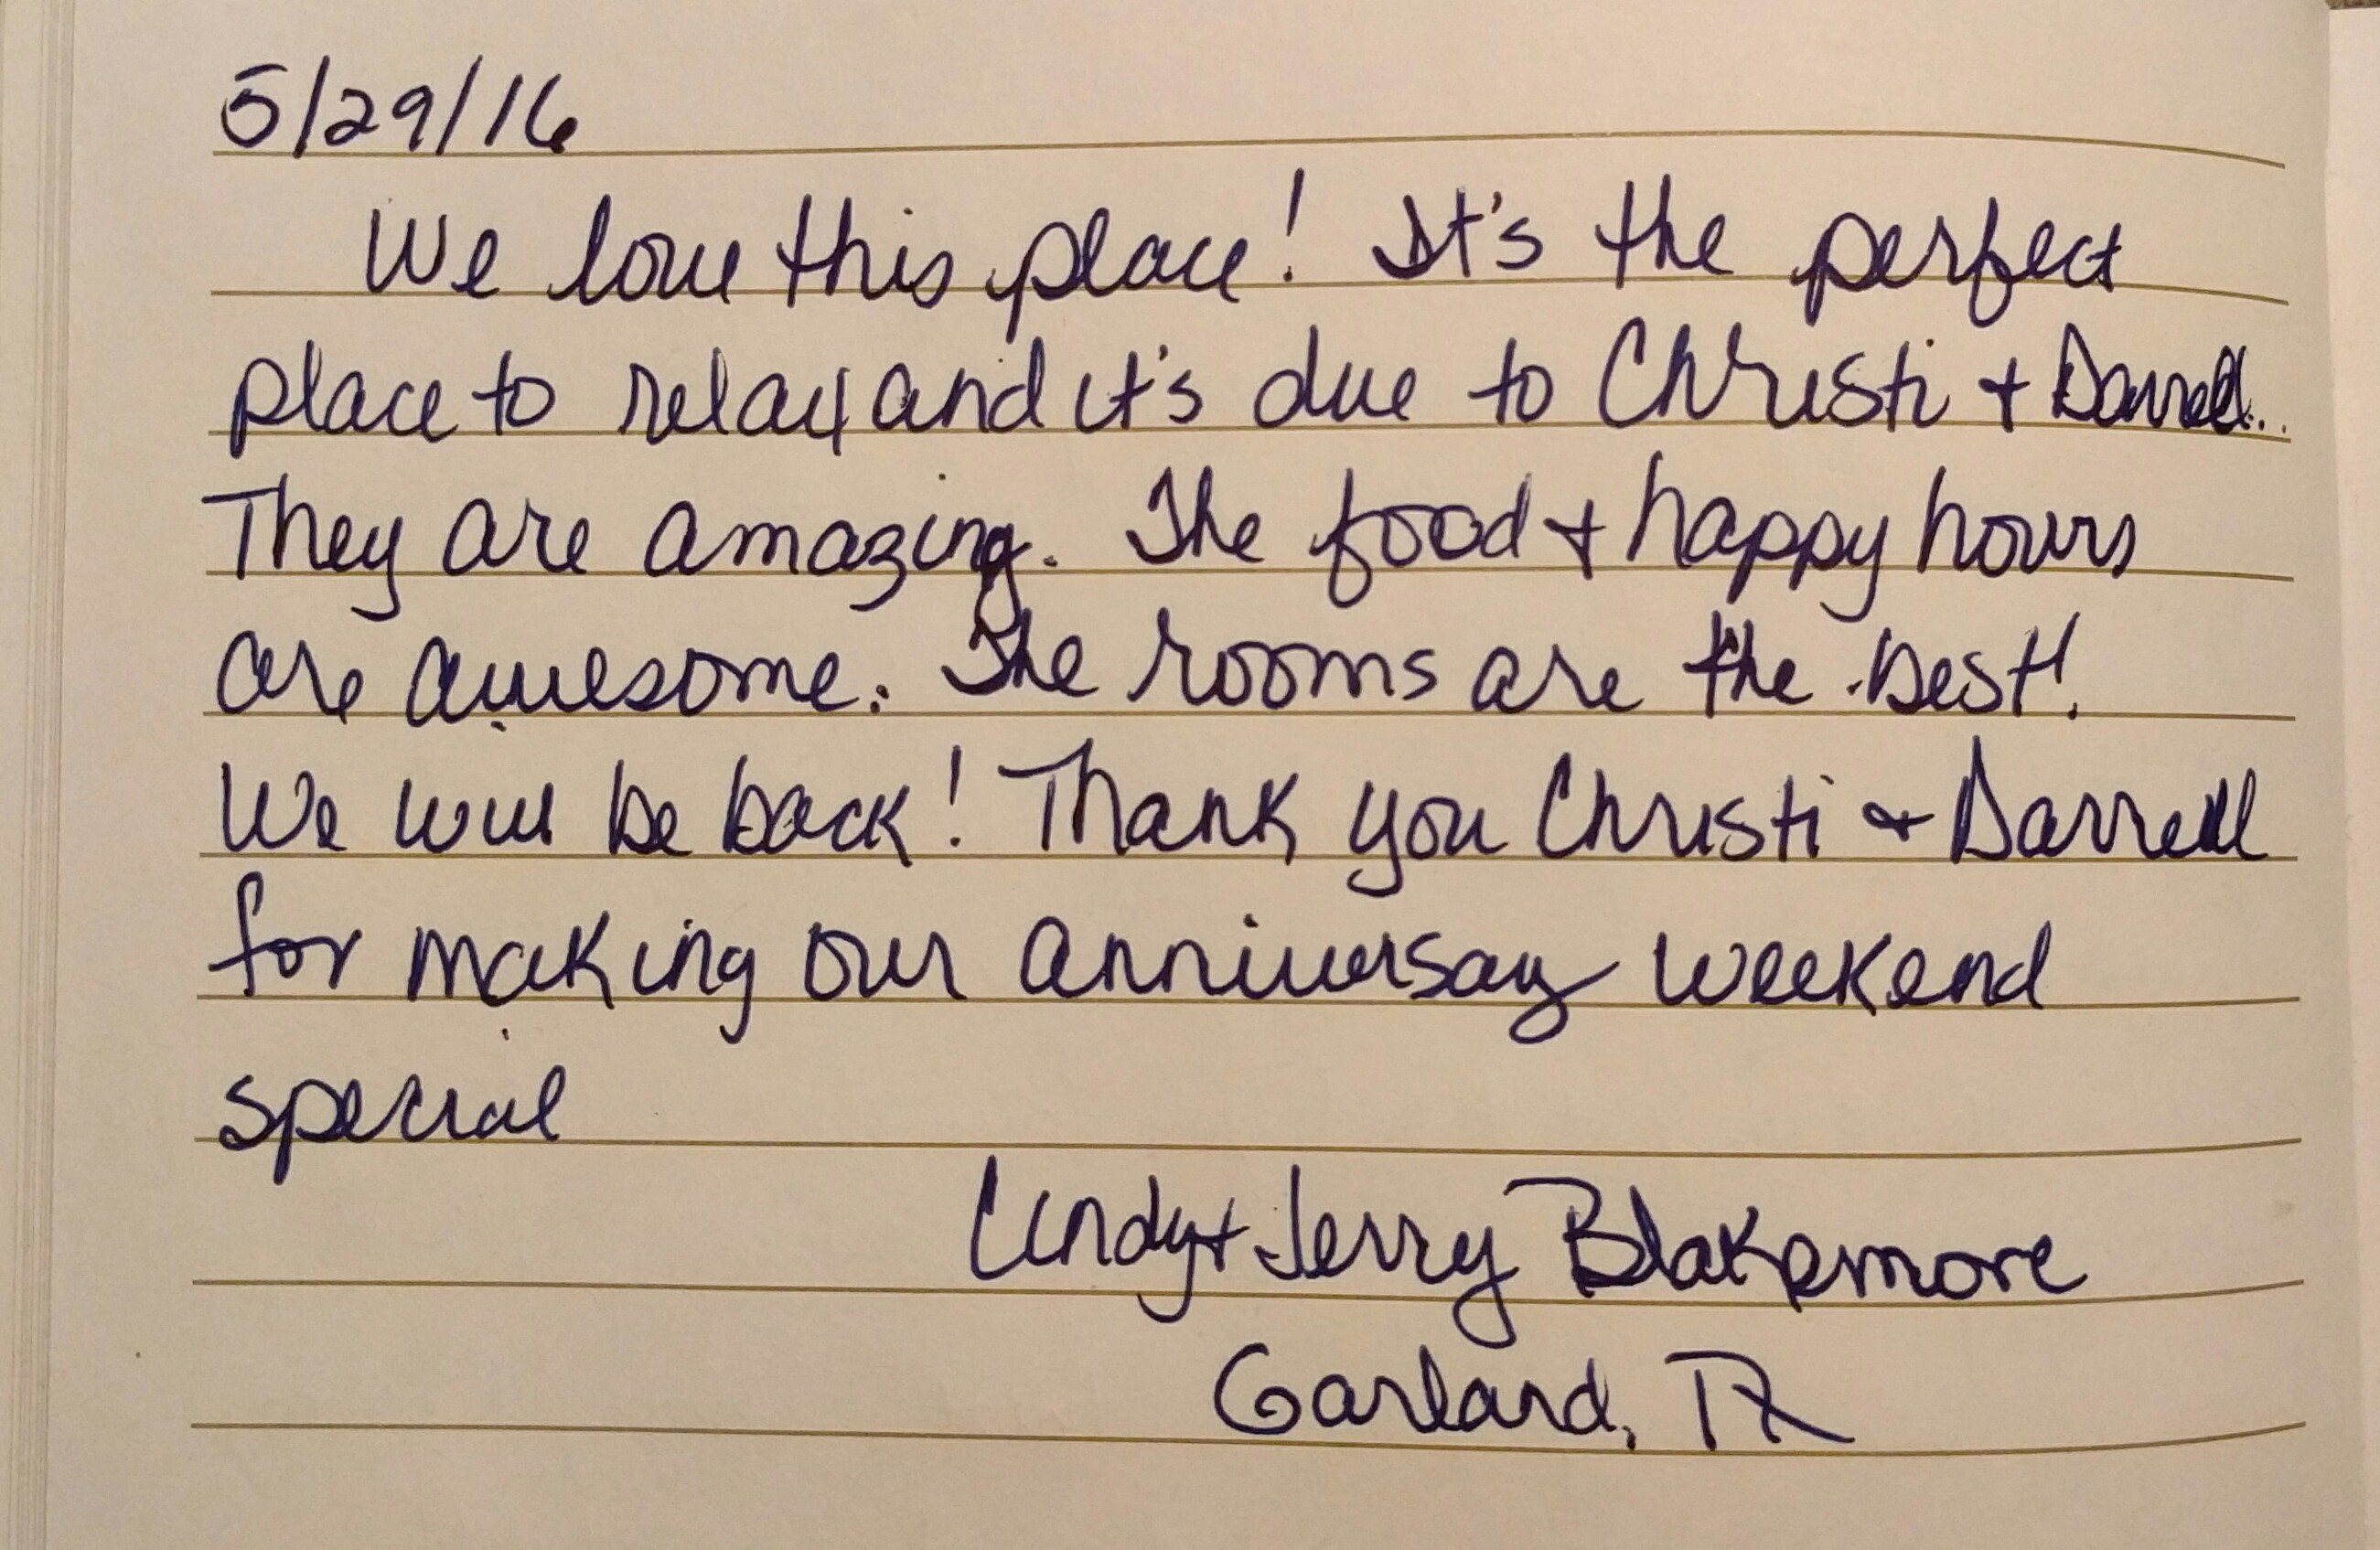 5/29/16
We love this place! It's the perfect
place to relax and it's due to Christi + Darrell..
They are amazing. The food + happy hours
are awesome. The rooms are the best!
We will be back! Thank you Christi + Darrell
for making our anniversay weekend
special
Cindy + Jerry Blakemore
Garland, TX